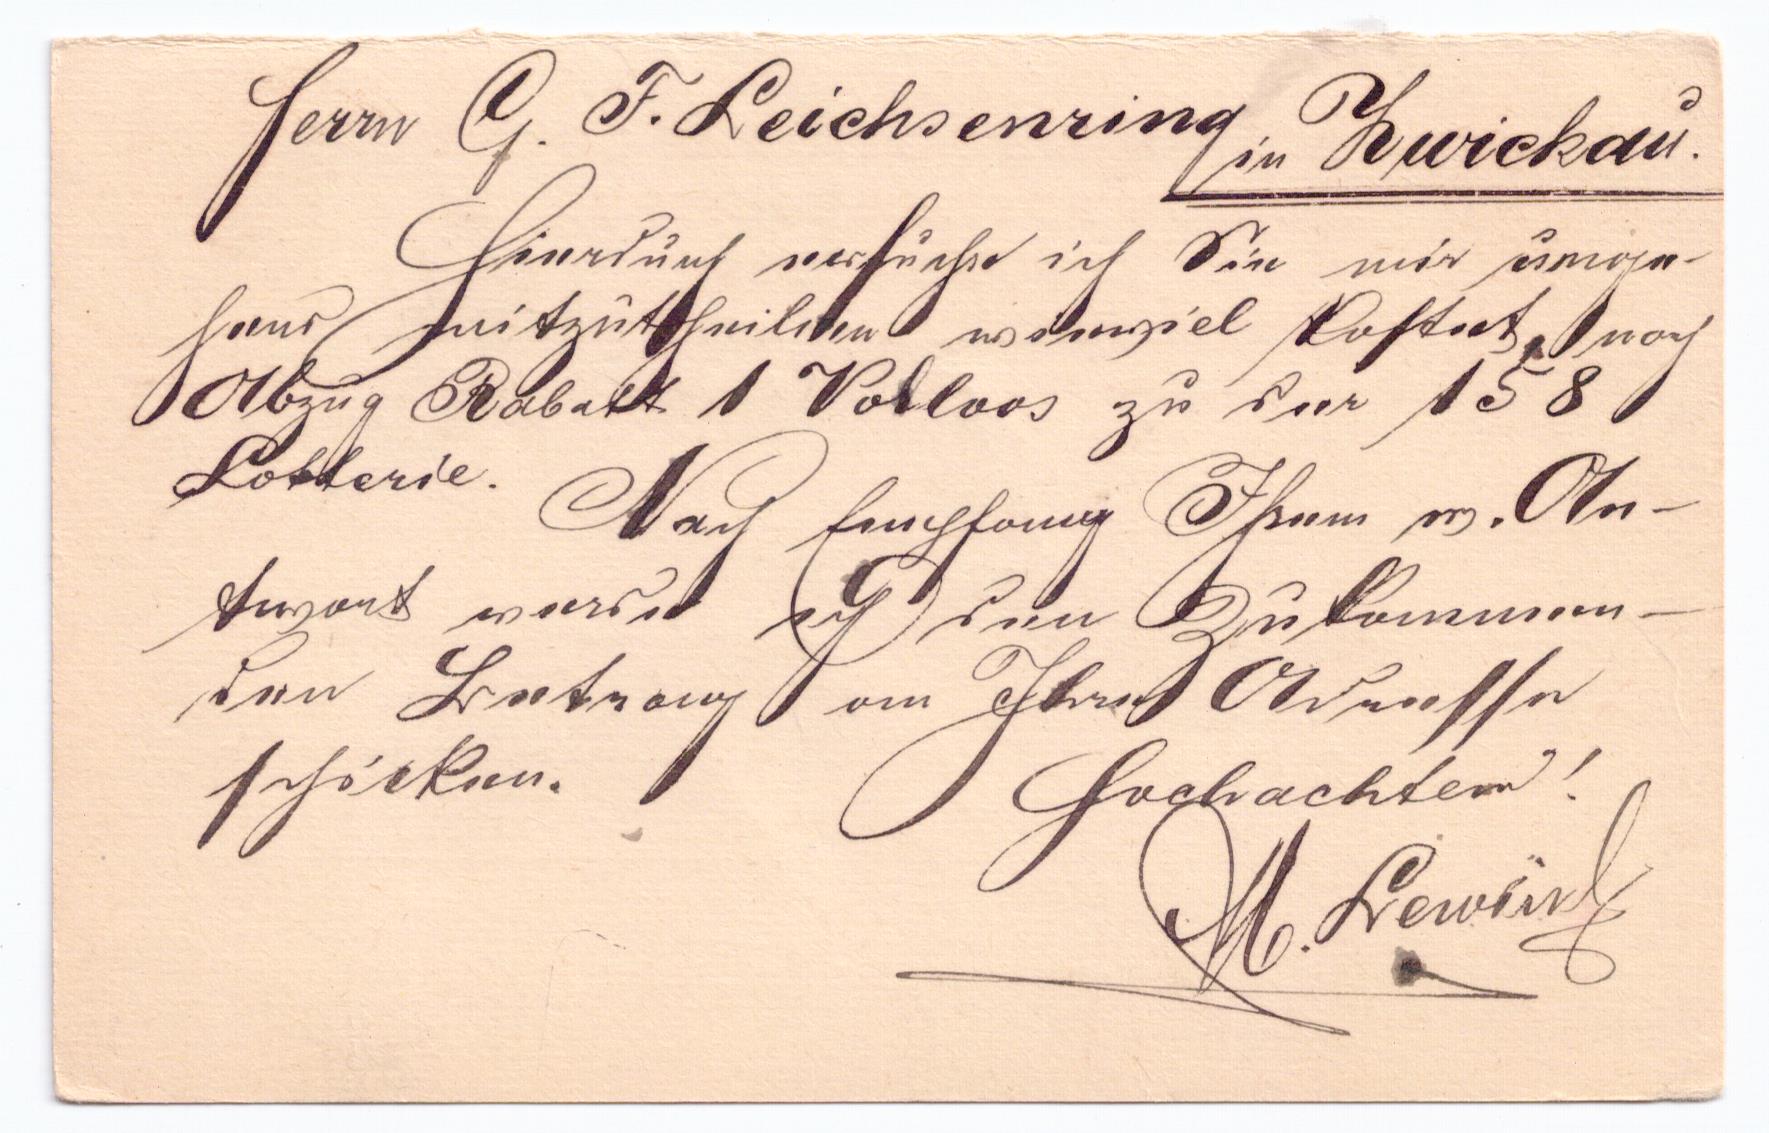 Herrn G. F. Leichsenring in Zwickau.
Hierdurch ersuche ich Sie mir umge-
hend mitzutheilen wieviel kostet, nach
Abzug Rabatt 1 Volloos zu der 158
Lotterie. Nach Empfang Ihrem w. An-
twort werde ich den Zukommen-
den Betrag an Ihre Adresse
schicken. Hochachtend!
M.